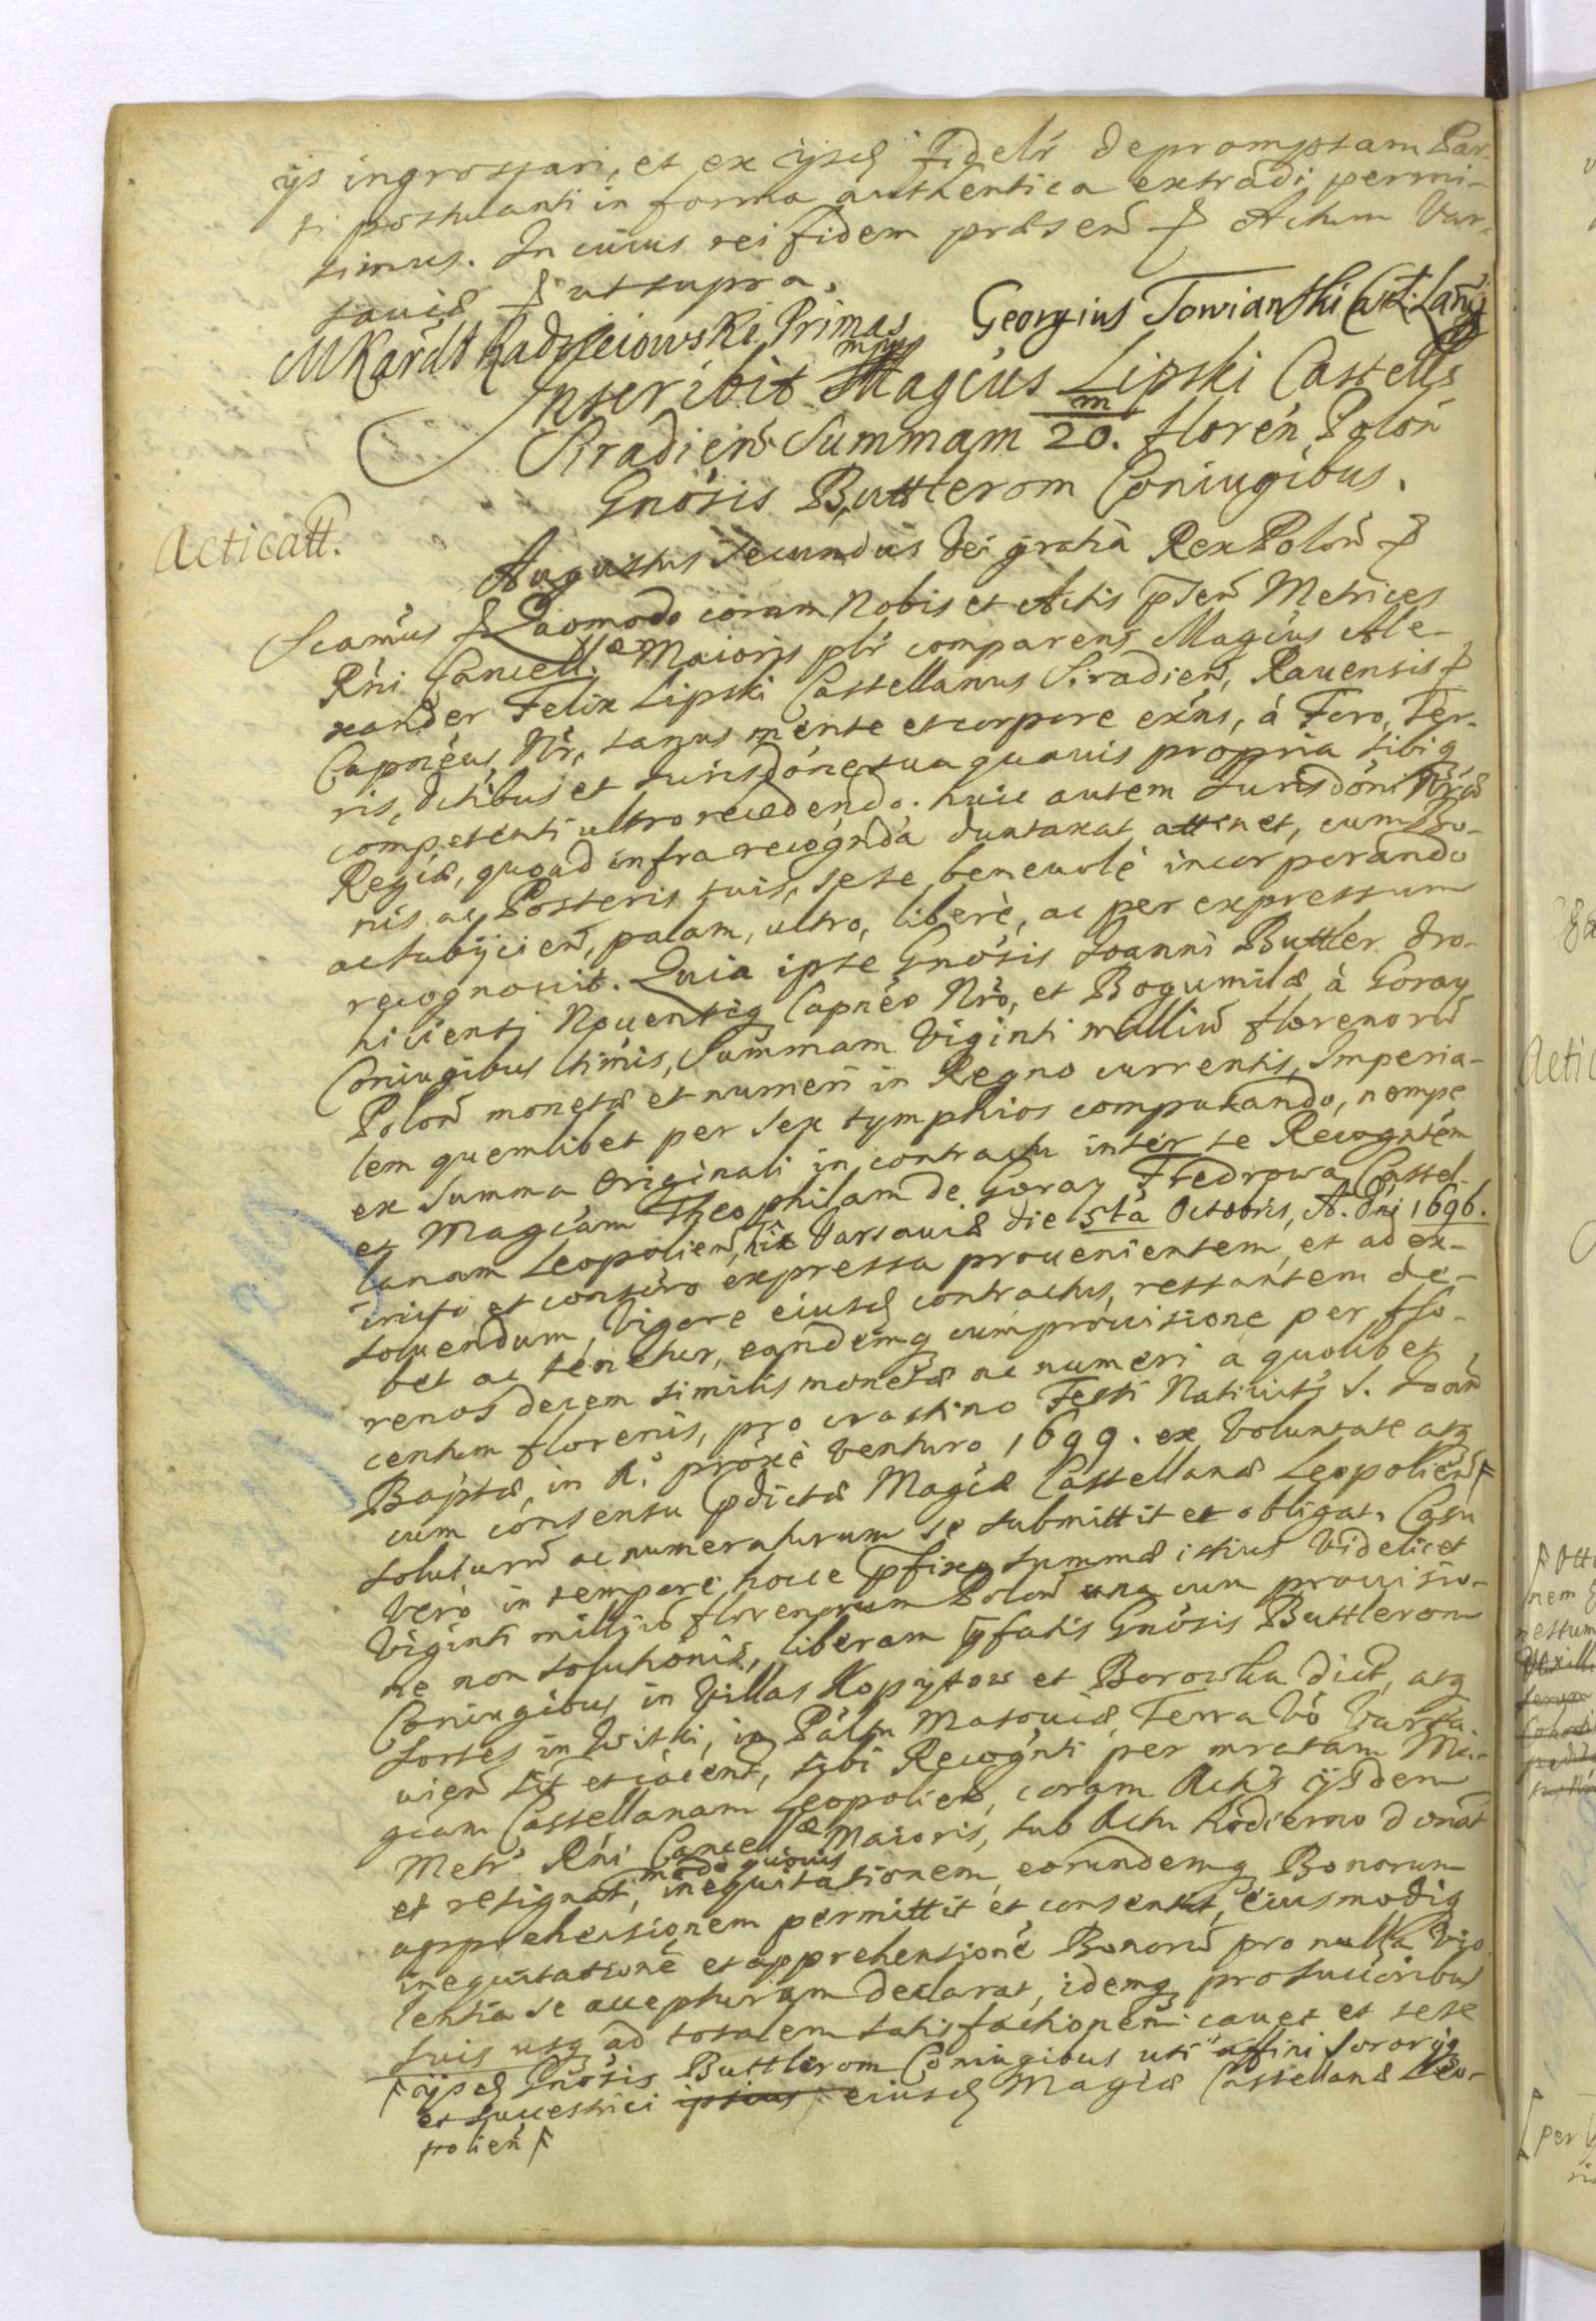 ijs ingrossari, et ex ijsd fidelr depromptam Par-
ti postulanti in forma authentica extradi permi-
simus. In cuius rei fidem præsen Actum Var-
saviæ ut supra.
M Kardł Radzieiowski Primas mpp
Georgius Towianski Cast: Lanc
Inscribit Magcus Lipski Castells
Siradien Summam 20. m floren Polon
Gnosis Buttlerom Coniugibus.
Acticatt.
Augustus Secundus Dei gratia Rex Polon
Scamus Quomodo coram Nobis et Actis pnten Metrices
Rni Cancellæ Maioris plr comparens Magcus Ale-
xander Felix Lipski Castellanus Siradien, Ravensis
Capneus Nr, sanus mente et corpore exns, à Foro, Ter-
ris, Dctibus et Jurisdone sua quavis propria sibiq
competenti ultro recedendo. huic autem Jurisdoni Nræ
Regiæ, quoad infra recognda duntaxat attinet, cum Bo-
nis ac Posteris suis, sese benevolè incorporando
ac subijcien, palam, ultro, liberè, ac per expressum
recognovit. Quia ipse Gnosis Joanni Buttler Dro-
hicienti Noventiq Capneo Nro, et Bogumilæ à Goray
Coniugibus ltimis, Summam Viginti milliu florenoru
Polon monetæ et numeri in Regno currentis, Imperia-
lem quemlibet per sex tymphios computando, nempe
ex Summa Originali in contractu inter se Recogntem
et Magcam Theophilam de Goray Fredrowa Castel-
lanam Leopolien, hic Varsaviæ die 5ta Octobris, A. Dni 1696.
inito et conscro expressa provenientem, et ad ex-
solvendum, Vigore eiusd contractus, restantem de-
bet ac tenetur, eandemq cum provisione per flo-
renos decem similis monetæ ac numeri a quolibet
centum florenis, pro crastino Festi Nativits S. Joan
Baptæ, in A. proxè venturo 1699. ex Voluntate atq
cum consensu pdictæ Magcæ Castellanæ Leopolien
soluturu ac numeraturum se submittit et obligat. Casu
Vero in tempore hocce pfixo summæ istius Videlicet
Viginti milliu florenorum Polon una cum provisio-
ne non solutionis, liberam pfatis Gnosis Buttlerom
Coniugibus, in Villas Kopytow et Borowka dict, atq
sortes in Witki, in Paltu Masoviæ, Terra Vo Varsa-
vien sit et iacent, sibi Recognti per mratam Ma-
gcam Castellanam Leopolien, coram Actis ijsdem
Metr Rni Cancellæ Maioris, sub Actu hodierno donat
et resignat, modo quovis inequitationem, eorundemq Bonorum
apprehensionem permittit et consentit, eiusmodiq
inequitatione et apprehensione Bonoru pro nulla Vio-
lentia se accepturum declarat, idemq pro successoribus
suis usq ad totalem satisfactionem cavet et sese
ijsd Gnosis Buttlerom Coniugibus uti affini sororiq
et successrici ipsius eiusd Magcæ Castellanæ Leo-
polien